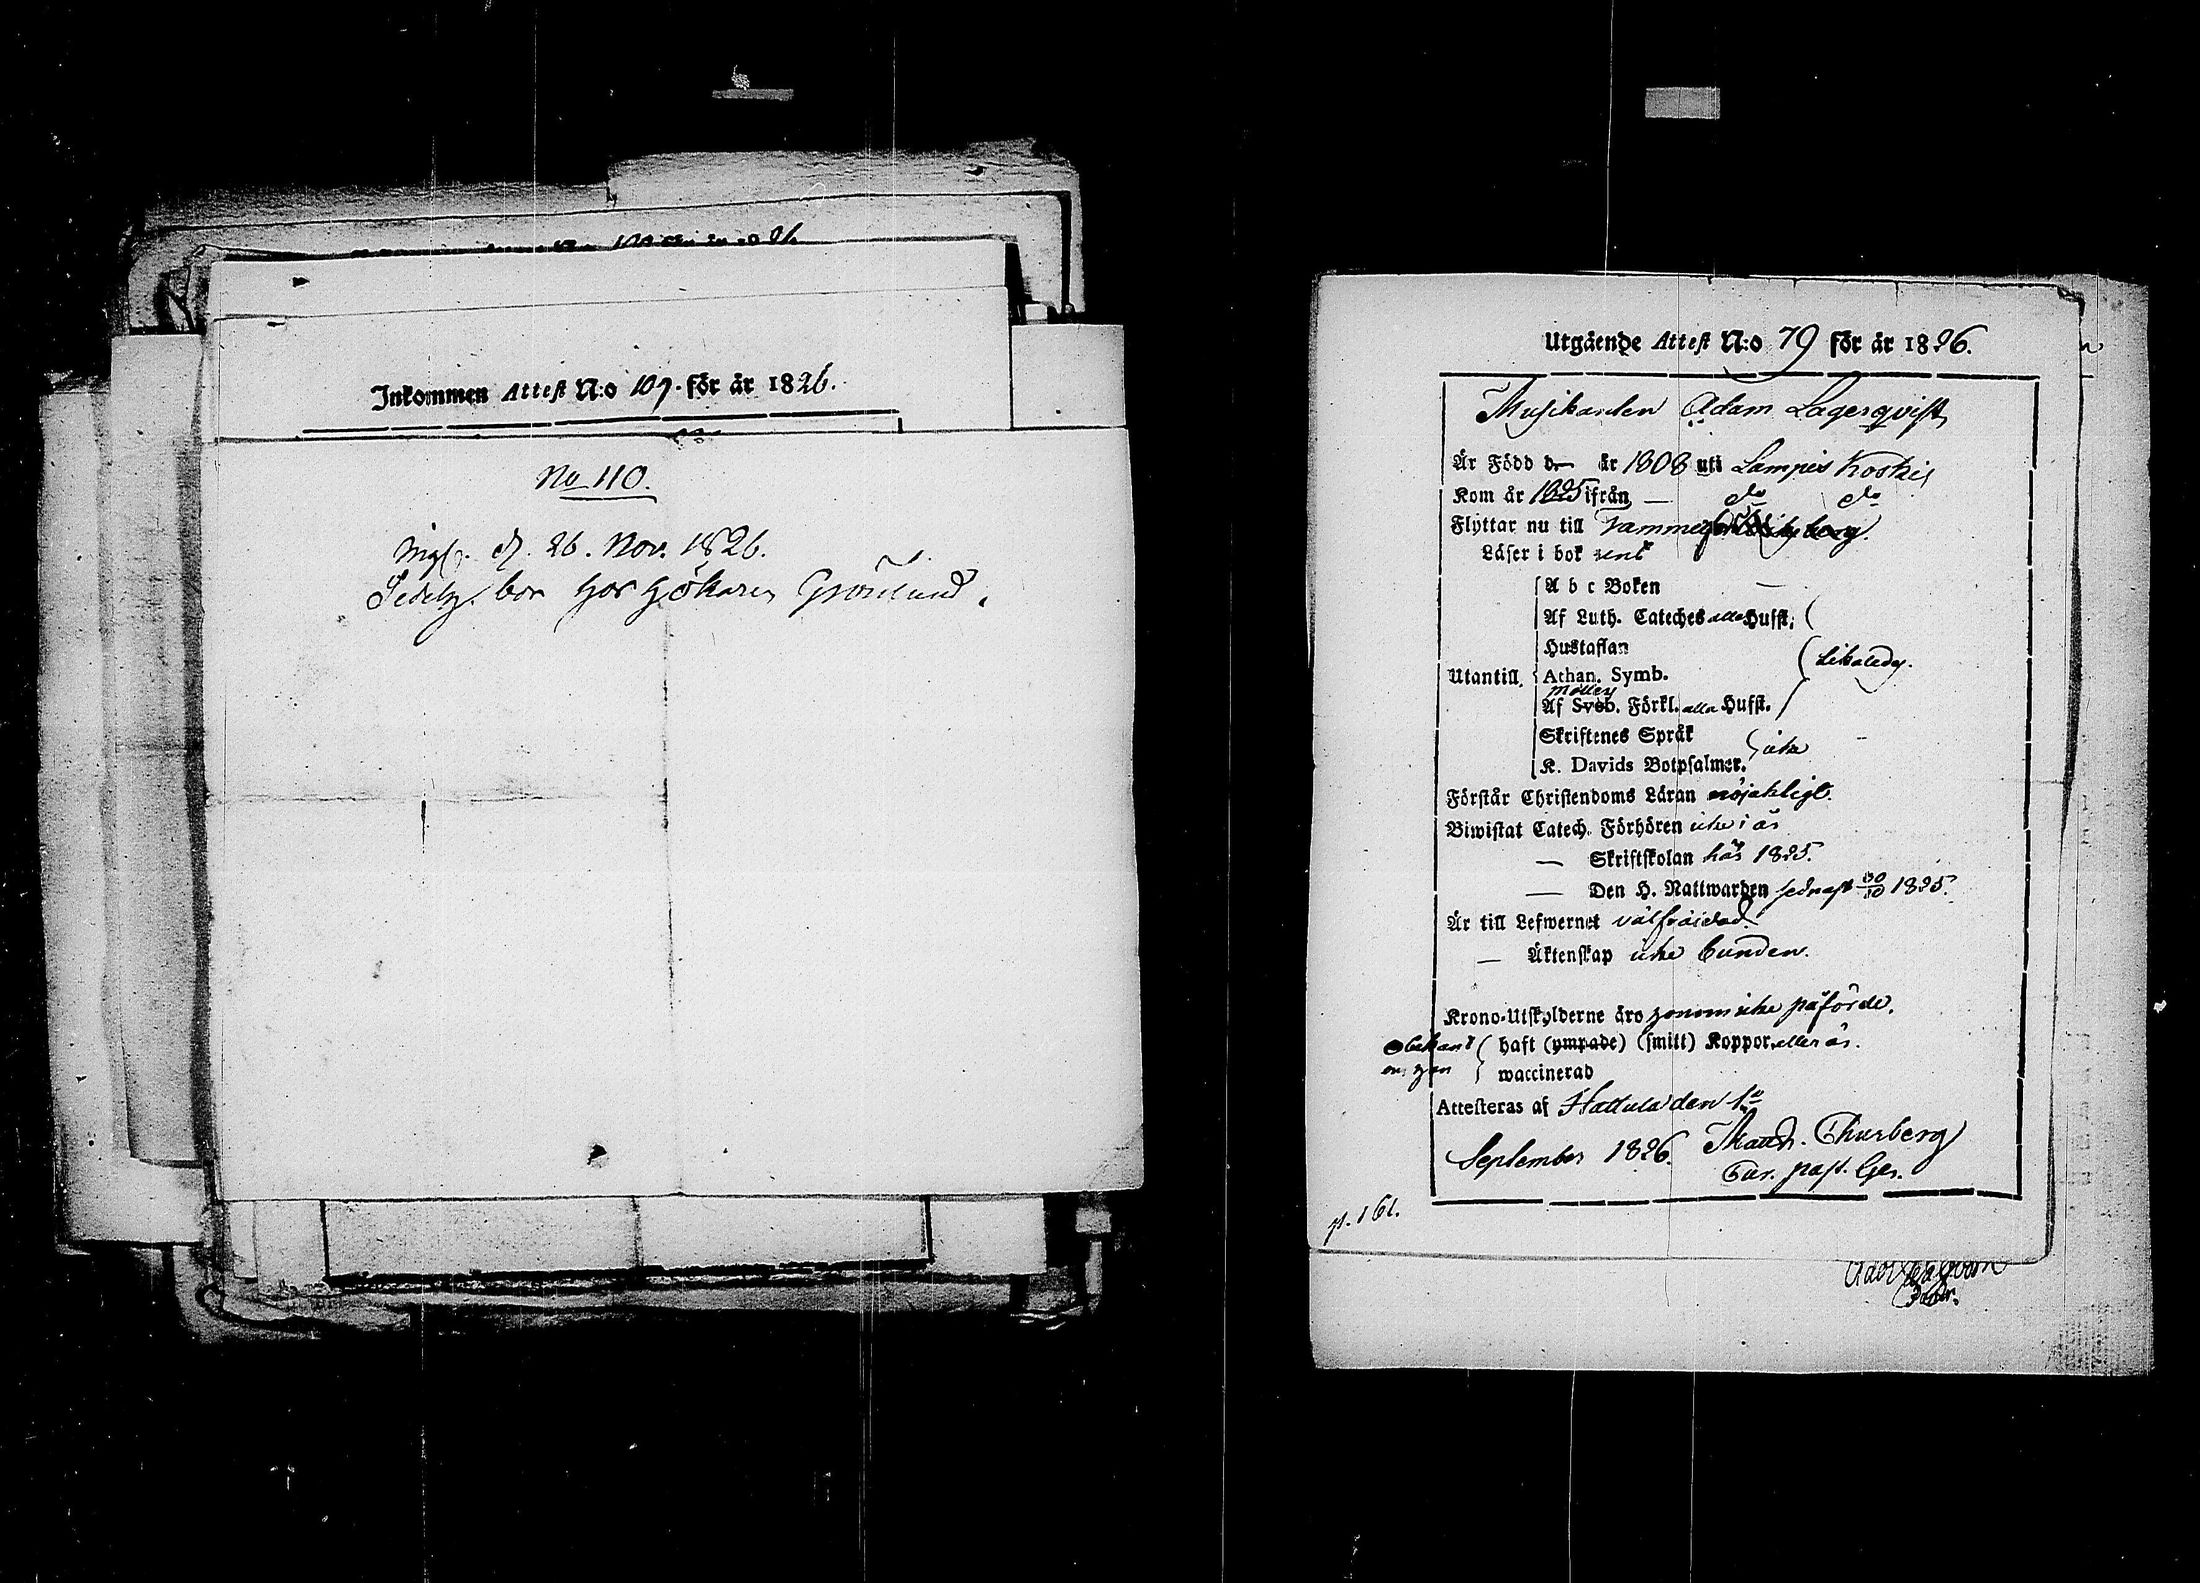 Inkommen Attest N:o 109. för år 1826.
No 110.
d. 26. Nov. 1826.
bor hos Hökaren Grönlund.
Utgående Attest N:o 79 för år 1826.
Musikanten Adam Lagerqvist
Är Född d — år 1808 uti Lampis Koskis
Kom år 1825 ifrån — do do
Flyttar nu till
Läser i bok rent
A b c Boken —
Af Luth. Cateches alla Hufst.
Hustaflan
Likaledes.
Utantill. Athan. Symb.
Möllers
Af Sveb. Förkl. alla Hufst.
Skriftenes Språk
icke
K. Davids Botpsalmer.
Förstår Christendoms Läran nöjaktligt.
Biwistat Catech. Förhören icke i år
— Skriftskolan här 1825.
— Den H. Nattwarden sednast 30/10 1825.
Är till Lefwernet välfräjdad.
— Äktenskap icke bunden.
Krono-Utskylderne äro honom icke påförde.
Obekant haft (ympade) (smitt) Koppor eller är
om han waccinerad
Attesteras af Hattula den 1
September 1826. Thurberg
Cur. past. Ger.
p. 161.